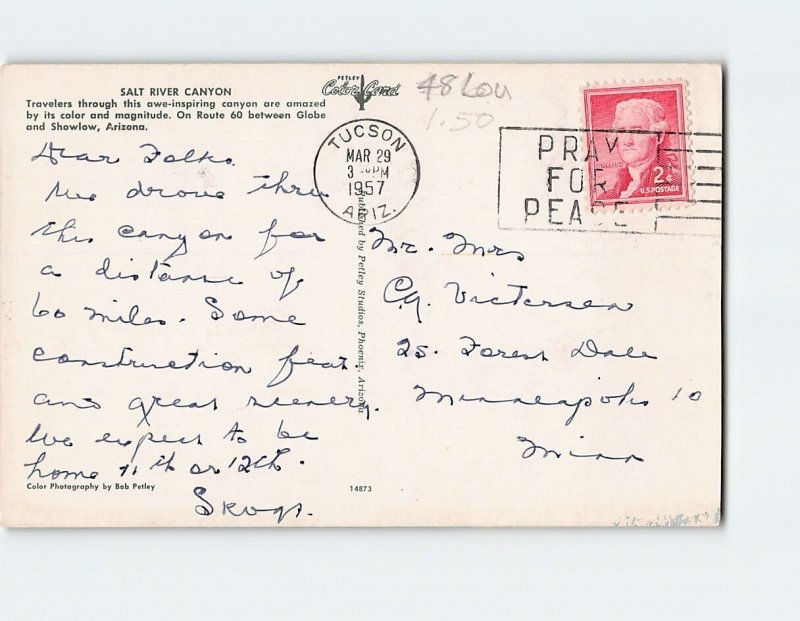 SALT RIVER CANYON
Travelers through this awe-inspiring canyon are amazed
by its color and magnitude. On Route 60 between Globe
and Showlow, Arizona.
PETLEY
Color Card
48 Lou
1.50
TUCSON
MAR 29
3 PM
1957
ARIZ.
PRAY
FOR
PEACE
2¢
U.S. POSTAGE
Dear Folks.
We drove thru
this canyon for
a distance of
60 miles. Some
construction feat
and great scenery.
We expect to be
home 11th or 12th.
Skogs.
Published by Petley Studios, Phoenix, Arizona
Mr. Mrs
25. Forest Dale
Minneapolis 10
Minn
Color Photography by Bob Petley
14873